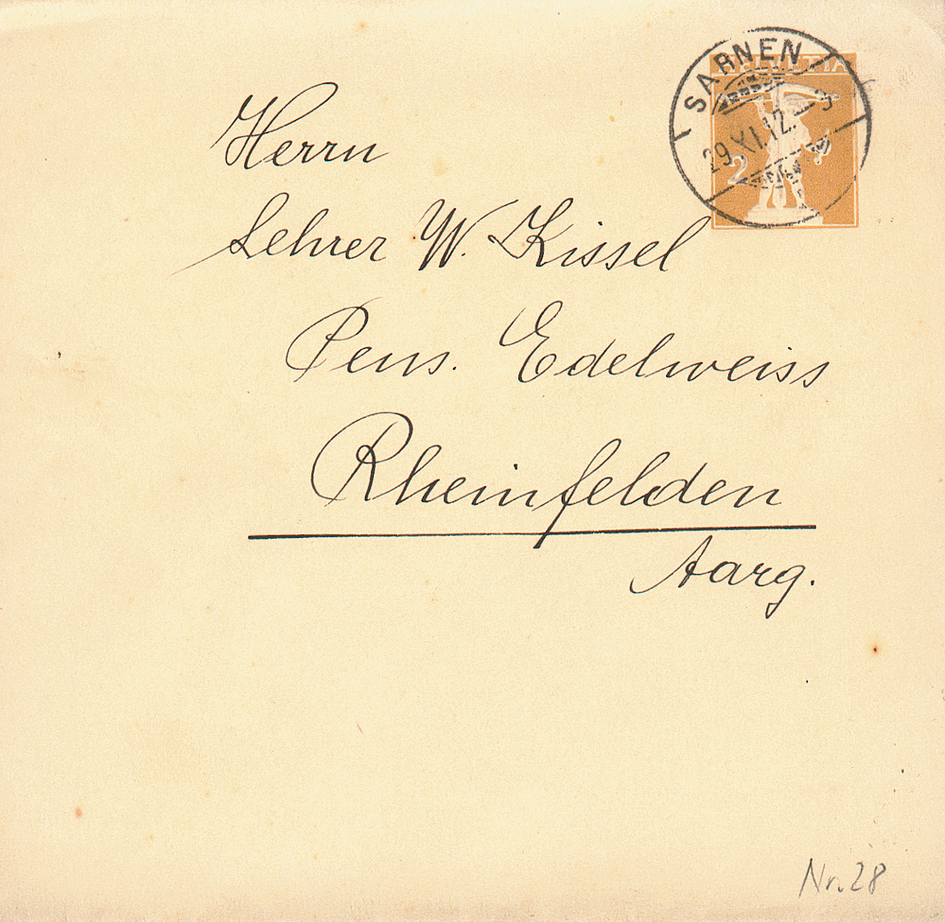 HELVETIA
SARNEN
29.XI.12.-3
2
Herrn
Lehrer W. Kissel
Pens. Edelweiss
Rheinfelden
Aarg.
Nr. 28